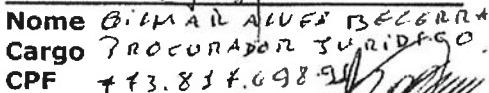 Nome GILMAR ALVES BEZERRA
Cargo PROCURADOR JURIDICO
CPF